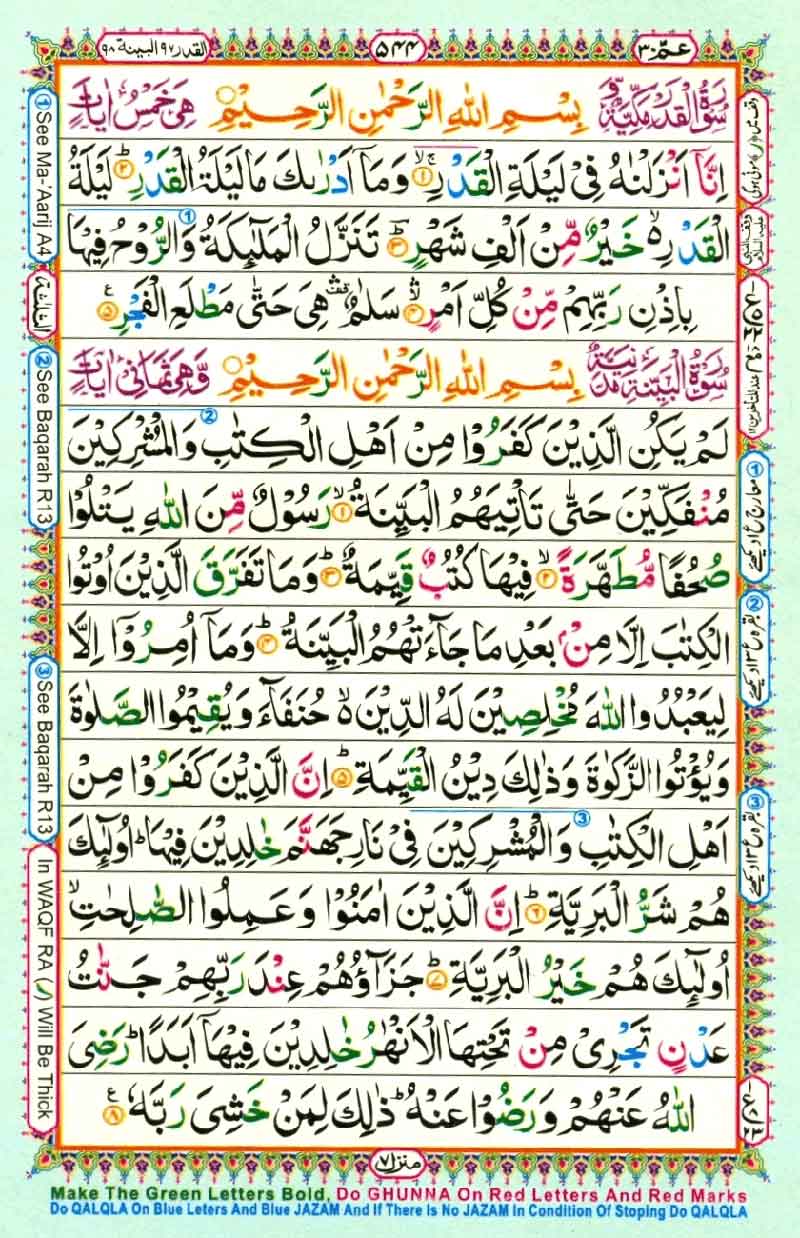 القدر ٩٧ البينة ٩٨
٥٤٤
عم ٣٠
سُوْرَةُ الْقَدْرِ مَكِّيَّةٌ وَّ بِسْمِ اللهِ الرَّحْمٰنِ الرَّحِيْمِ هِيَ خَمْسُ اٰيَاتٍ
اِنَّاۤ اَنْزَلْنٰهُ فِيْ لَيْلَةِ الْقَدْرِ ۚۖ ۱ وَمَاۤ اَدْرٰىكَ مَا لَيْلَةُ الْقَدْرِ ؕ ۲ لَيْلَةُ
الْقَدْرِ ۙ۬ خَيْرٌ مِّنْ اَلْفِ شَهْرٍ ؕ ۳ تَنَزَّلُ الْمَلٰٓئِكَةُ وَالرُّوْحُ فِيْهَا
بِاِذْنِ رَبِّهِمْ مِّنْ كُلِّ اَمْرٍ ۙۛ ۴ سَلٰمٌ ۛ۟ هِيَ حَتّٰى مَطْلَعِ الْفَجْرِ ۵ ع
سُوْرَةُ الْبَيِّنَةِ مَدَنِيَّةٌ بِسْمِ اللهِ الرَّحْمٰنِ الرَّحِيْمِ وَّهِيَ ثَمَانِيْ اٰيَاتٍ
لَمْ يَكُنِ الَّذِيْنَ كَفَرُوْا مِنْ اَهْلِ الْكِتٰبِ وَالْمُشْرِكِيْنَ
مُنْفَكِّيْنَ حَتّٰى تَاْتِيَهُمُ الْبَيِّنَةُ ۙ ۱ رَسُوْلٌ مِّنَ اللهِ يَتْلُوْا
صُحُفًا مُّطَهَّرَةً ۙ ۲ فِيْهَا كُتُبٌ قَيِّمَةٌ ؕ ۳ وَمَا تَفَرَّقَ الَّذِيْنَ اُوْتُوا
الْكِتٰبَ اِلَّا مِنْۢ بَعْدِ مَا جَآءَتْهُمُ الْبَيِّنَةُ ؕ ۴ وَمَاۤ اُمِرُوْۤا اِلَّا
لِيَعْبُدُوا اللهَ مُخْلِصِيْنَ لَهُ الدِّيْنَ ۙ۬ حُنَفَآءَ وَيُقِيْمُوا الصَّلٰوةَ
وَيُؤْتُوا الزَّكٰوةَ وَذٰلِكَ دِيْنُ الْقَيِّمَةِ ؕ ۵ اِنَّ الَّذِيْنَ كَفَرُوْا مِنْ
اَهْلِ الْكِتٰبِ وَالْمُشْرِكِيْنَ فِيْ نَارِ جَهَنَّمَ خٰلِدِيْنَ فِيْهَا ؕ اُولٰٓئِكَ
هُمْ شَرُّ الْبَرِيَّةِ ؕ ۶ اِنَّ الَّذِيْنَ اٰمَنُوْا وَعَمِلُوا الصّٰلِحٰتِ ۙ
اُولٰٓئِكَ هُمْ خَيْرُ الْبَرِيَّةِ ؕ ۷ جَزَآؤُهُمْ عِنْدَ رَبِّهِمْ جَنّٰتُ
عَدْنٍ تَجْرِيْ مِنْ تَحْتِهَا الْاَنْهٰرُ خٰلِدِيْنَ فِيْهَاۤ اَبَدًا ؕ رَضِيَ
اللهُ عَنْهُمْ وَرَضُوْا عَنْهُ ؕ ذٰلِكَ لِمَنْ خَشِيَ رَبَّهٗ ۸ ع
① See Ma-'Aarij A4
② See Baqarah R13
③ See Baqarah R13
In WAQF RA (ر) Will Be Thick
منزل ٧
Make The Green Letters Bold, Do GHUNNA On Red Letters And Red Marks
Do QALQLA On Blue Leters And Blue JAZAM And If There Is No JAZAM In Condition Of Stoping Do QALQLA